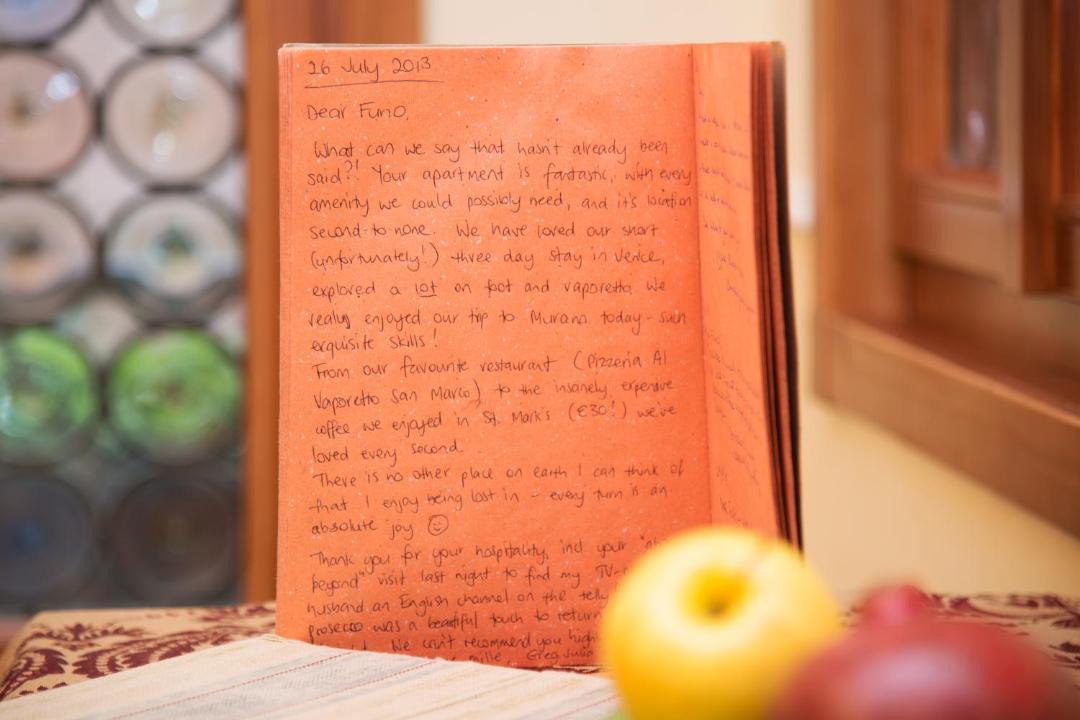 26 July 2013
Dear Furio,
What can we say that hasn't already been
said?! Your apartment is fantastic, with every
amenity we could possibly need, and it's location
second-to-none. We have loved our short
(unfortunately!) three day stay in Venice,
explored a lot on foot and vaporetto. We
really enjoyed our trip to Murano today - such
exquisite skills!
From our favourite restaurant (Pizzeria Al
Vaporetto San Marco) to the insanely expensive
coffee we enjoyed in St. Mark's (€30!) we've
loved every second.
There is no other place on earth I can think of
that I enjoy being lost in - every turn is an
absolute joy ☺
Thank you for your hospitality, incl your
beyond" visit last night to find my TV-
husband an English channel on the telly
prosecco was a beautiful touch to return
We can't recommend you high
mille, Greg Julia